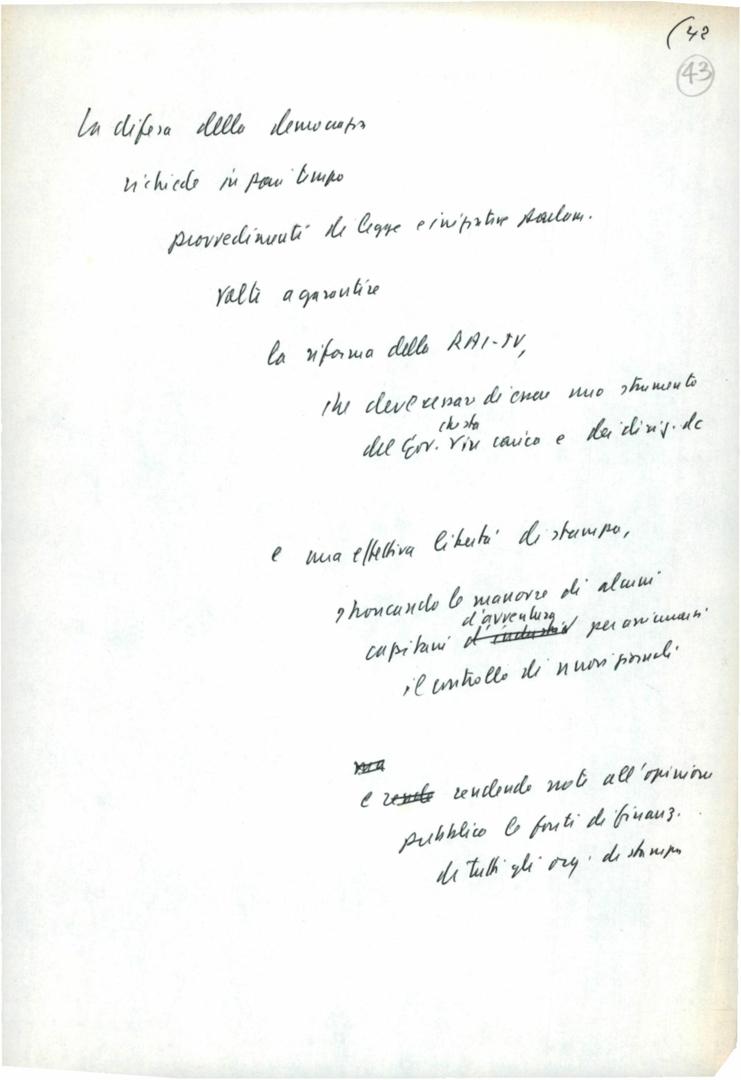 (42
43
La difesa della democrazia
richiede in pari tempo
provvedimenti di legge e iniziative parlam.
volti a garantire
la riforma della RAI-TV,
che deve cessare di essere uno strumento
che sta
del Gov. in carica e dei dirig. dc
e una effettiva libertà di stampa,
stroncando le manovre di alcuni
d'avventura
capitani d'industria per assicurarsi
il controllo di nuovi giornali
ma
e rende rendendo note all'opinione
pubblica le fonti di finanz.
di tutti gli org. di stampa